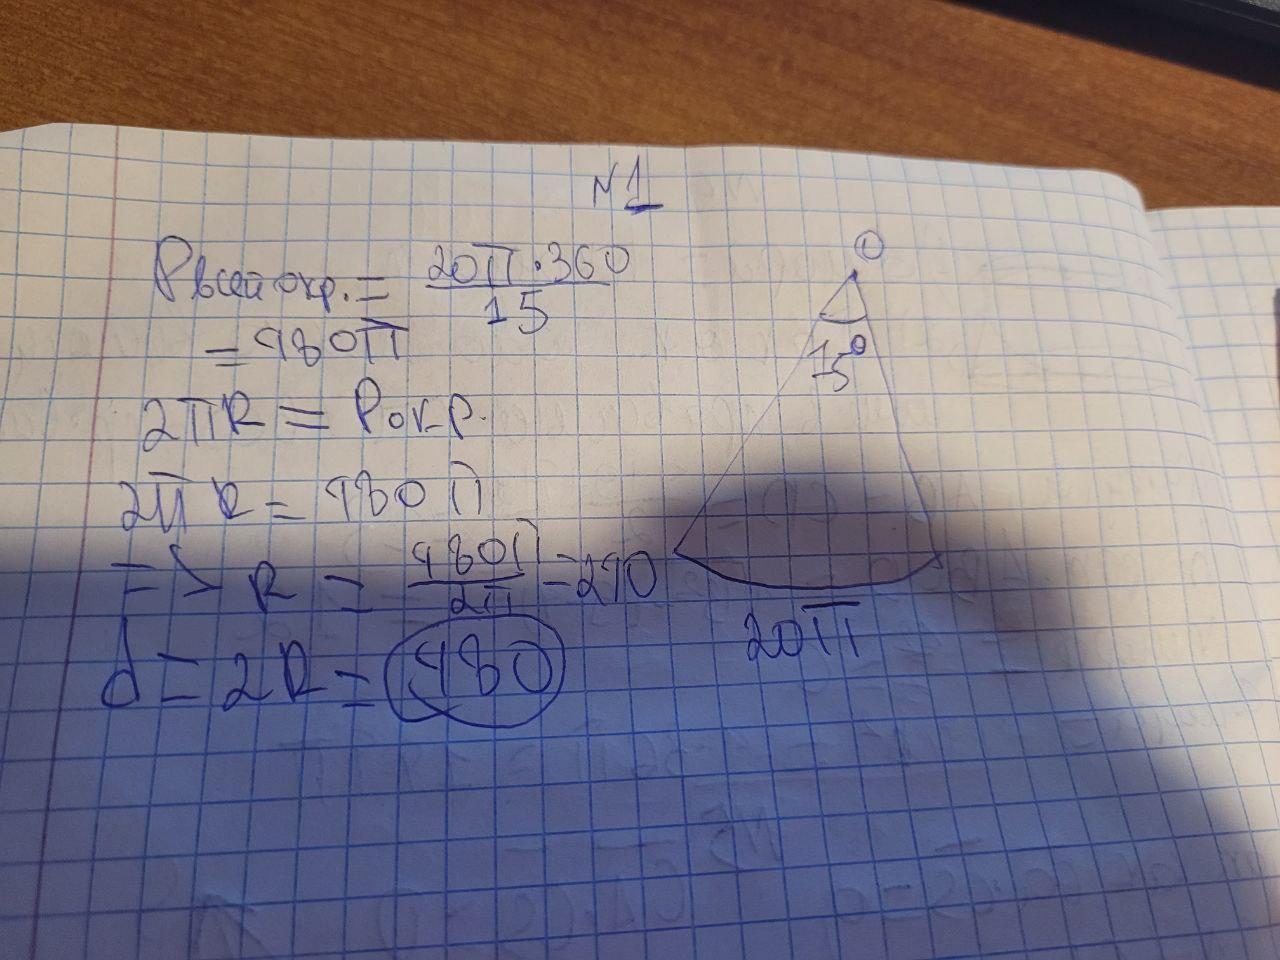 N 1
P всей окр. = 20π·360 / 15
= 480π
2πR = Pокр.
2πR = 480π
=> R = 480π / 2π = 240
d = 2R = 480
O
15°
20π